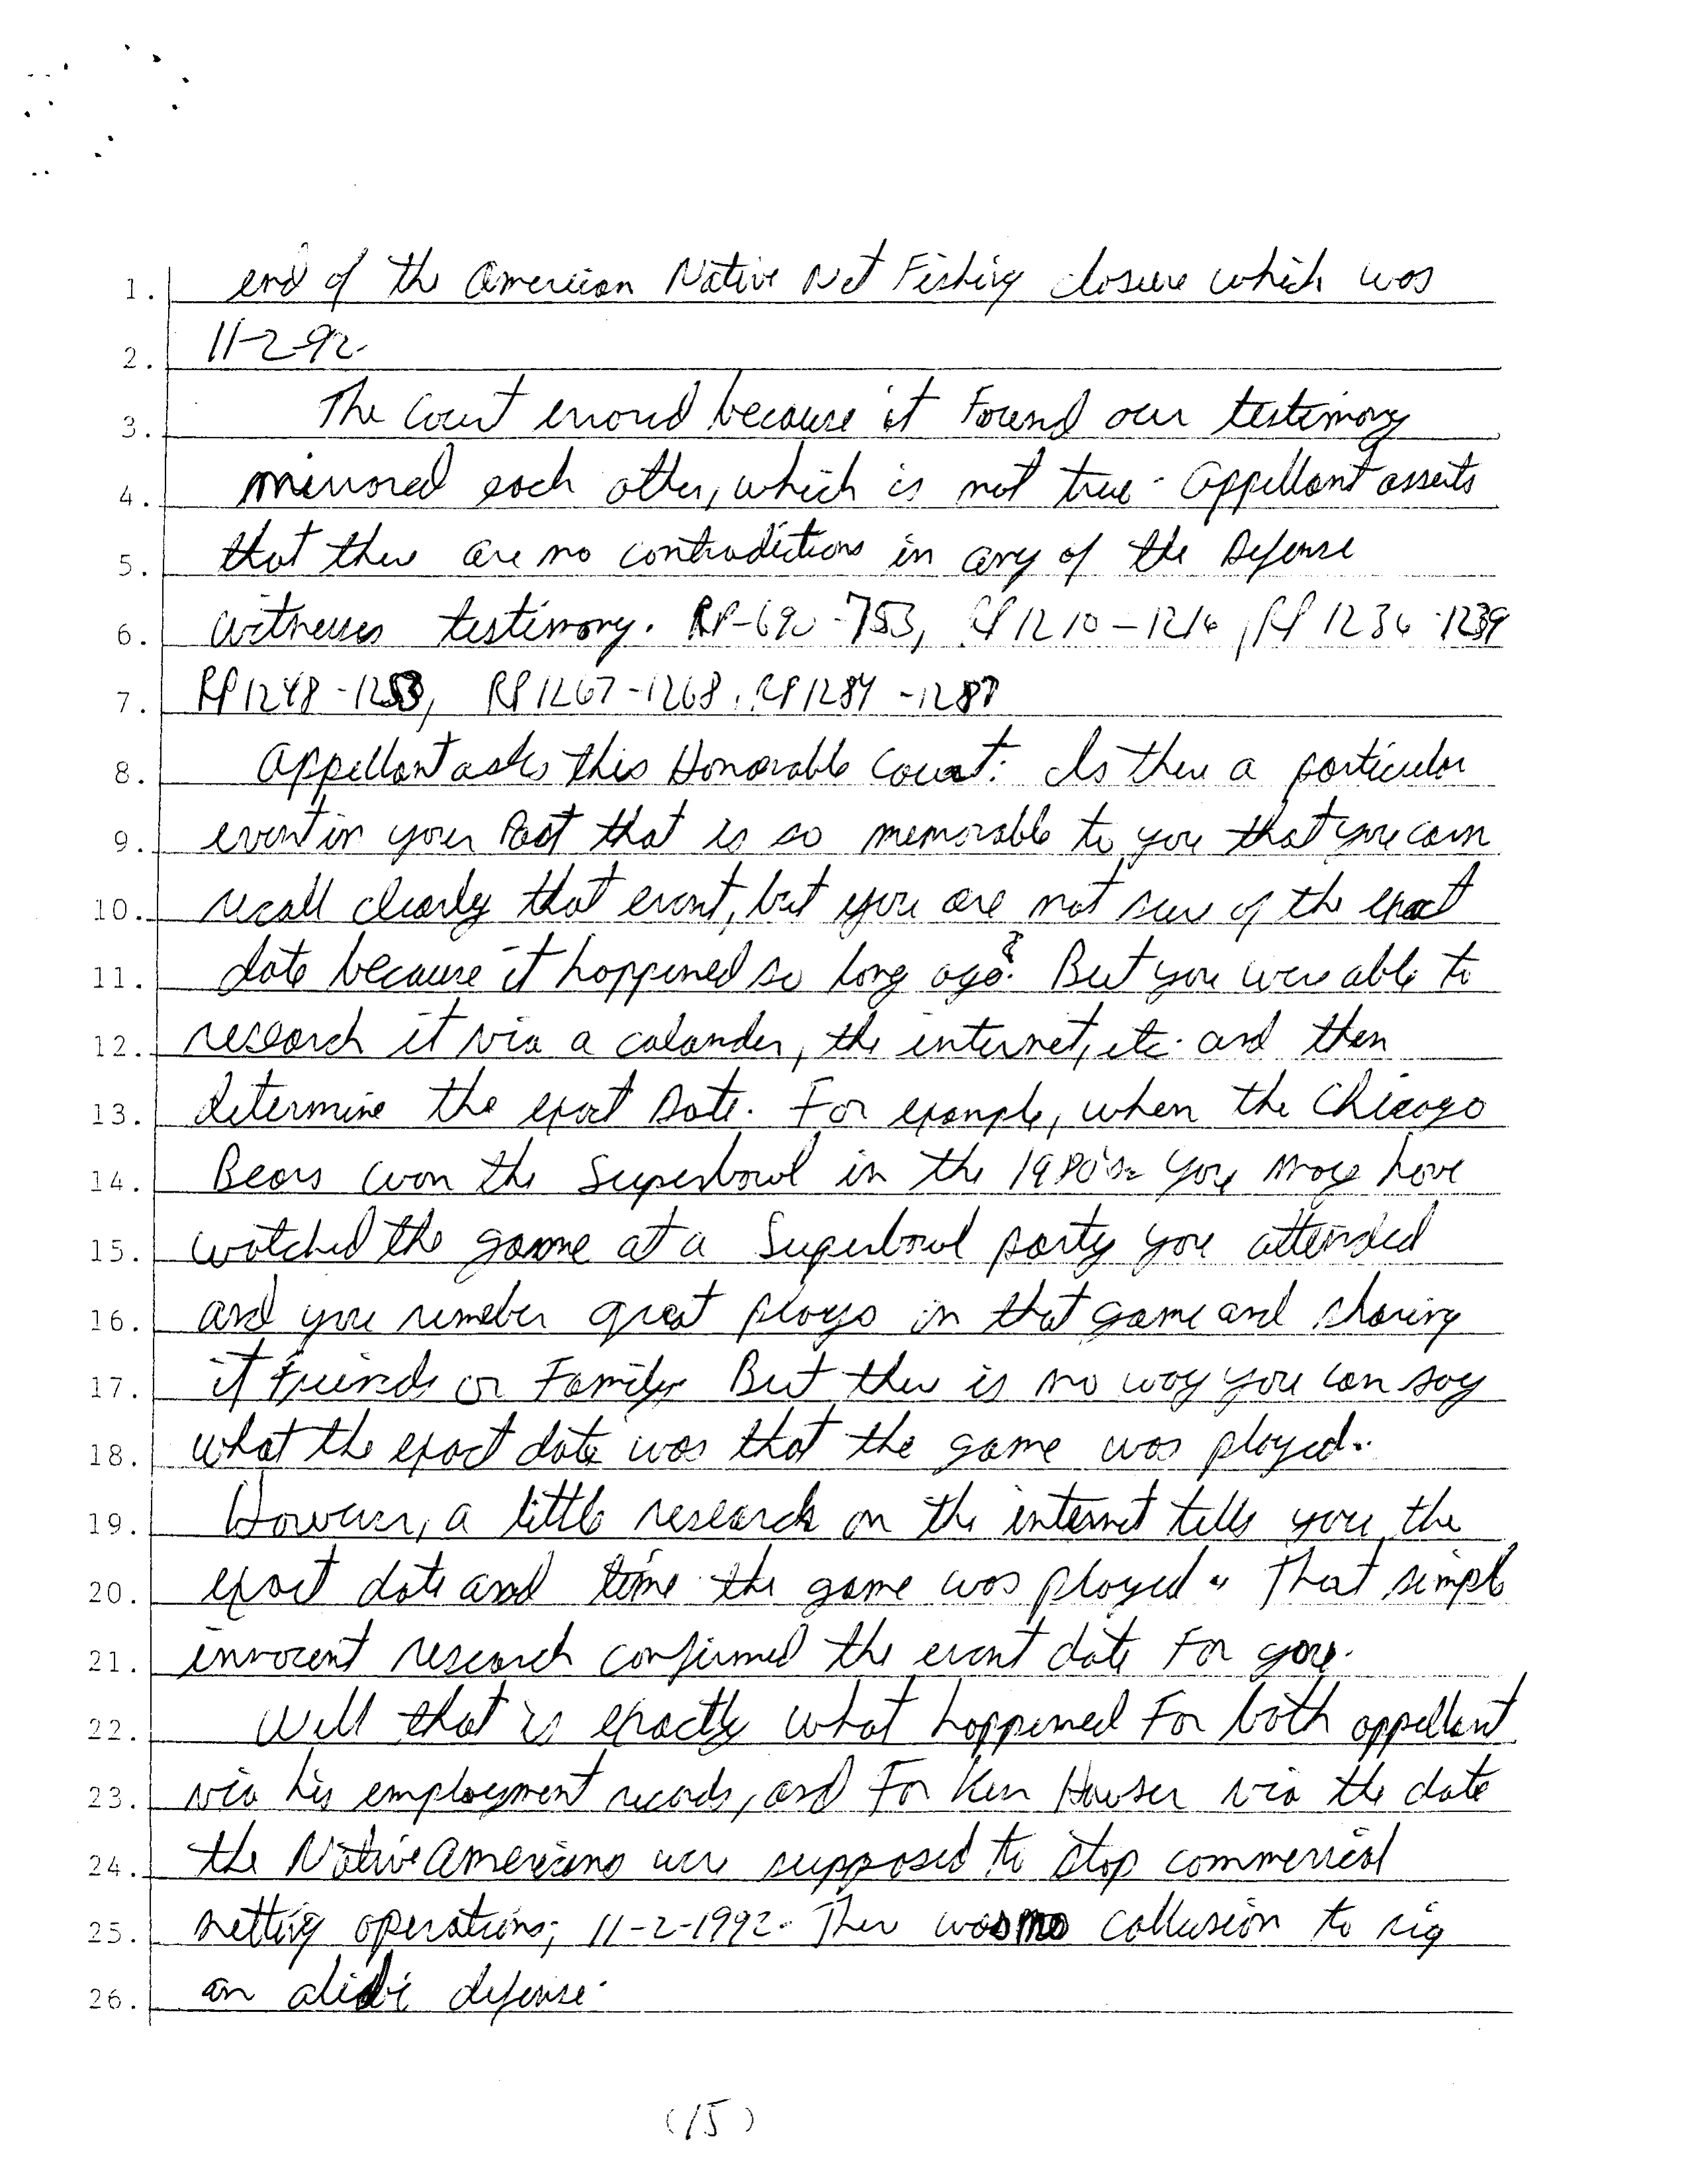 1. end of the American Native Net Fishing closure which was
2. 11-2-92.
3. The Court errored because it Found our testimony
4. mirrored each other, which is not true. Appellant asserts
5. that there are no contradictions in any of the Defense
6. witnesses testimony. RP-690-753, RP 1210-1216, RP 1236-1239
7. RP 1248-1253, RP 1267-1268, RP 1284-1287
8. Appellant asks this Honorable Court: Is there a particular
9. event in your Past that is so memorable to you that you can
10. recall clearly that event, but you are not sure of the exact
11. date because it happened so long ago? But you were able to
12. research it via a calander, the internet, etc. and then
13. determine the exact Date. For example, when the Chicago
14. Bears won the Superbowl in the 1980's. You may have
15. watched the game at a Superbowl party you attended
16. and you rember great plays in that game and sharing
17. it Friends or Family. But there is no way you can say
18. what the exact date was that the game was played.
19. However, a little research on the internet tells you the
20. exact date and time the game was played. That simple
21. innocent research confirmed the event date For you.
22. Well that is exactly what happened For both appellant
23. via his employment records, and For Ken Hauser via the date
24. the Native Americans were supposed to stop commerical
25. netting operations; 11-2-1992. There was no collusion to rig
26. an alibi defense.
(15)